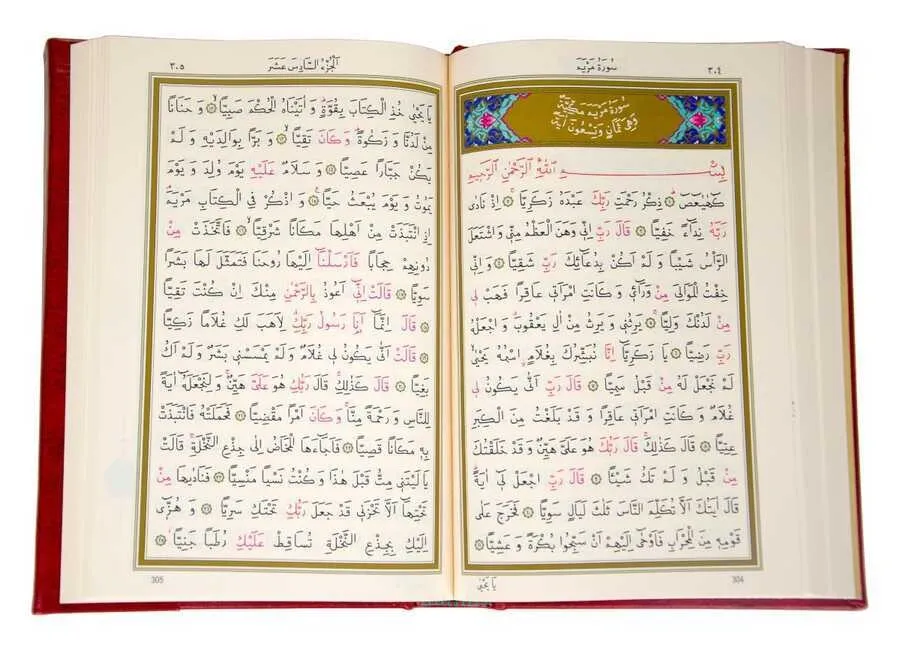 ٣٠٤
سُورَةُ مَرْيَمَ
سُورَةُ مَرْيَمَ مَكِّيَّةٌ
وَهِيَ ثَمَانٍ وَتِسْعُونَ اٰيَةً
بِسْمِ اللّٰهِ الرَّحْمٰنِ الرَّحِيمِ
كٓهٰيٰعٓصٓ ۞ ذِكْرُ رَحْمَتِ رَبِّكَ عَبْدَهُ زَكَرِيَّا ۞ اِذْ نَادٰى
رَبَّهُ نِدَٓاءً خَفِيًّا ۞ قَالَ رَبِّ اِنّ۪ي وَهَنَ الْعَظْمُ مِنّ۪ي وَاشْتَعَلَ
الرَّأْسُ شَيْبًا وَ لَمْ اَكُنْ بِدُعَٓائِكَ رَبِّ شَقِيًّا ۞ وَ اِنّ۪ي
خِفْتُ الْمَوَالِيَ مِنْ وَرَٓاء۪ي وَ كَانَتِ امْرَاَت۪ي عَاقِرًا فَهَبْ ل۪ي
مِنْ لَدُنْكَ وَلِيًّا ۞ يَرِثُن۪ي وَ يَرِثُ مِنْ اٰلِ يَعْقُوبَ وَ اجْعَلْهُ
رَبِّ رَضِيًّا ۞ يَا زَكَرِيَّٓا اِنَّا نُبَشِّرُكَ بِغُلَامٍ اسْمُهُ يَحْيٰى
لَمْ نَجْعَلْ لَهُ مِنْ قَبْلُ سَمِيًّا ۞ قَالَ رَبِّ اَنّٰى يَكُونُ ل۪ي
غُلَامٌ وَ كَانَتِ امْرَاَت۪ي عَاقِرًا وَ قَدْ بَلَغْتُ مِنَ الْكِبَرِ
عِتِيًّا ۞ قَالَ كَذٰلِكَ قَالَ رَبُّكَ هُوَ عَلَيَّ هَيِّنٌ وَ قَدْ خَلَقْتُكَ
مِنْ قَبْلُ وَ لَمْ تَكُ شَيْئًا ۞ قَالَ رَبِّ اجْعَلْ ل۪ٓي اٰيَةً
قَالَ اٰيَتُكَ اَلَّا تُكَلِّمَ النَّاسَ ثَلٰثَ لَيَالٍ سَوِيًّا ۞ فَخَرَجَ عَلٰى
قَوْمِه۪ مِنَ الْمِحْرَابِ فَاَوْحٰٓى اِلَيْهِمْ اَنْ سَبِّحُوا بُكْرَةً وَ عَشِيًّا ۞
304
يَا يَحْيٰى
٣٠٥
اَلْجُزْءُ السَّادِسَ عَشَرَ
يَا يَحْيٰى خُذِ الْكِتَابَ بِقُوَّةٍ وَ اٰتَيْنَاهُ الْحُكْمَ صَبِيًّا ۞ وَ حَنَانًا
مِنْ لَدُنَّا وَ زَكٰوةً وَ كَانَ تَقِيًّا ۞ وَ بَرًّا بِوَالِدَيْهِ وَ لَمْ
يَكُنْ جَبَّارًا عَصِيًّا ۞ وَ سَلَامٌ عَلَيْهِ يَوْمَ وُلِدَ وَ يَوْمَ
يَمُوتُ وَ يَوْمَ يُبْعَثُ حَيًّا ۞ وَ اذْكُرْ فِي الْكِتَابِ مَرْيَمَ
اِذِ انْتَبَذَتْ مِنْ اَهْلِهَا مَكَانًا شَرْقِيًّا ۞ فَاتَّخَذَتْ مِنْ
دُونِهِمْ حِجَابًا فَاَرْسَلْنَٓا اِلَيْهَا رُوحَنَا فَتَمَثَّلَ لَهَا بَشَرًا
سَوِيًّا ۞ قَالَتْ اِنّ۪ٓي اَعُوذُ بِالرَّحْمٰنِ مِنْكَ اِنْ كُنْتَ تَقِيًّا
۞ قَالَ اِنَّمَٓا اَنَا رَسُولُ رَبِّكِ لِاَهَبَ لَكِ غُلَامًا زَكِيًّا
۞ قَالَتْ اَنّٰى يَكُونُ ل۪ي غُلَامٌ وَ لَمْ يَمْسَسْن۪ي بَشَرٌ وَ لَمْ اَكُ
بَغِيًّا ۞ قَالَ كَذٰلِكِ قَالَ رَبُّكِ هُوَ عَلَيَّ هَيِّنٌ وَ لِنَجْعَلَهُٓ اٰيَةً
لِلنَّاسِ وَ رَحْمَةً مِنَّا وَ كَانَ اَمْرًا مَقْضِيًّا ۞ فَحَمَلَتْهُ فَانْتَبَذَتْ
بِه۪ مَكَانًا قَصِيًّا ۞ فَاَجَٓاءَهَا الْمَخَاضُ اِلٰى جِذْعِ النَّخْلَةِ قَالَتْ
يَا لَيْتَن۪ي مِتُّ قَبْلَ هٰذَا وَ كُنْتُ نَسْيًا مَنْسِيًّا ۞ فَنَادٰيهَا مِنْ
تَحْتِهَٓا اَلَّا تَحْزَن۪ي قَدْ جَعَلَ رَبُّكِ تَحْتَكِ سَرِيًّا ۞ وَ هُزّ۪ٓي
اِلَيْكِ بِجِذْعِ النَّخْلَةِ تُسَاقِطْ عَلَيْكِ رُطَبًا جَنِيًّا ۞
305